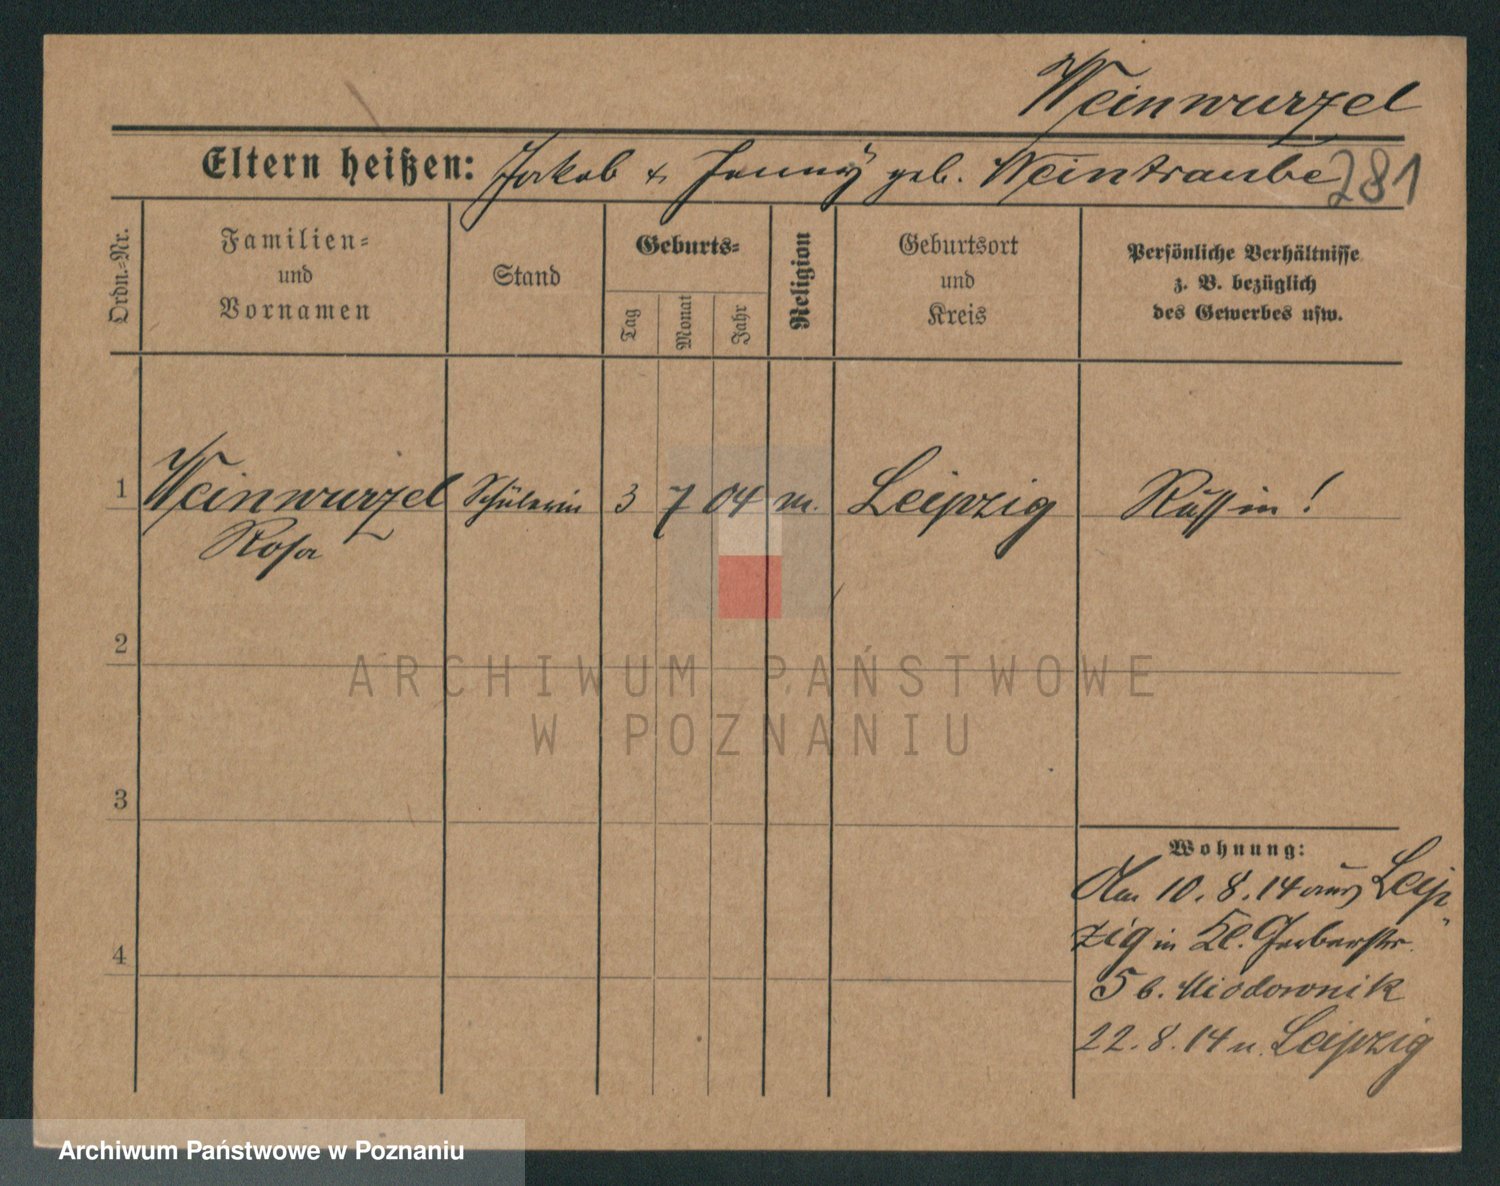 Weinwurzel
Eltern heißen: Jakob & Jenny geb. Weintraube 281
Ordn.-Nr.
Familien-
und
Vornamen
Stand
Geburts-
Tag
Monat
Jahr
Religion
Geburtsort
und
Kreis
Persönliche Verhältnisse
z. B. bezüglich
des Gewerbes usw.
1 Weinwurzel Schülerin 3 7 04 m. Leipzig Russin!
Rosa
2
ARCHIWUM PAŃSTWOWE
W POZNANIU
3
Wohnung:
Am 10.8.14 aus Leip-
zig in Kl. Gerberstr.
4
5 b. Miodownik
22.8.14 n. Leipzig
Archiwum Państwowe w Poznaniu